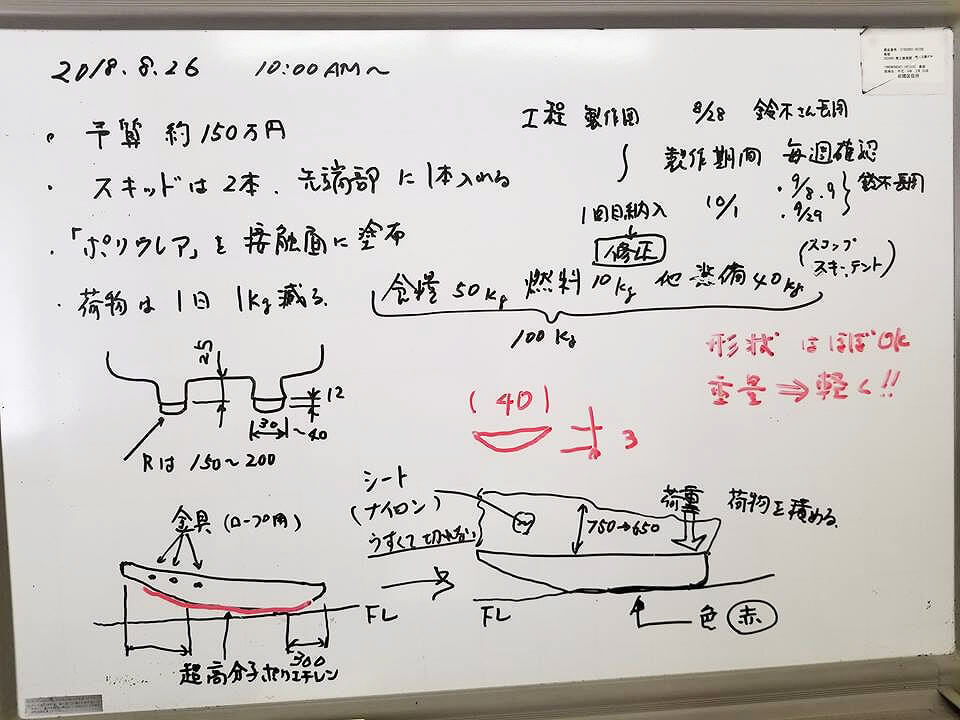 2018.8.26 10:00AM～
・予算 約150万円
・スキッドは2本、先端部に1本入れる
・「ポリウレア」を接触面に塗布
・荷物は1日 1kg減る
工程 製作図 8/28 鈴木さん長岡
製作期間 毎週確認
・9/8.9
・9/29
鈴木長岡
1回目納入 10/1
修正
食糧50kg 燃料10kg 他装備40kg
(スコップ
スキー、テント)
100kg
形状はほぼOK
重量⇒軽く!!
25
12
30～40
Rは 150～200
(40)
3
金具(ロープ用)
FL
300
超高分子ポリエチレン
シート
(ナイロン)
750→650
荷重
荷物を積める
FL
色 赤